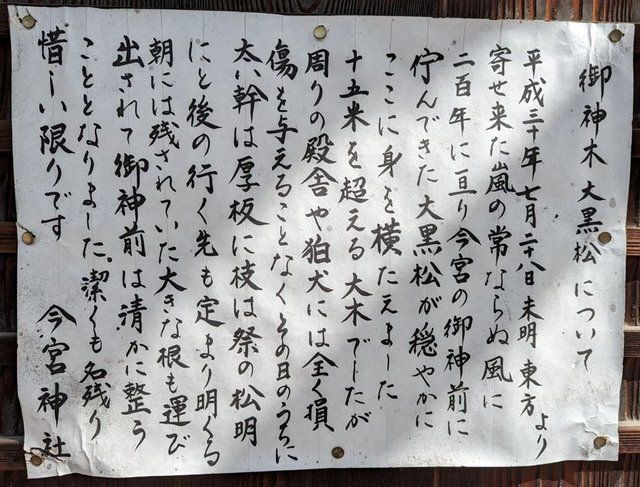 御神木大黒松について
平成三十年七月二十八日未明 東方より
寄せ来た嵐の常ならぬ風に
二百年に亘り今宮の御神前に
佇んできた大黒松が穏やかに
ここに身を横たえました
十五米を超える大木でしたが
周りの殿舎や狛犬には全く損
傷を与えることなくその日のうちに
太い幹は厚板に枝は祭の松明
にと後の行く先も定まり明くる
朝には残されていた大きな根も運び
出されて御神前は清かに整う
こととなりました。潔くも名残り
惜しい限りです 今宮神社